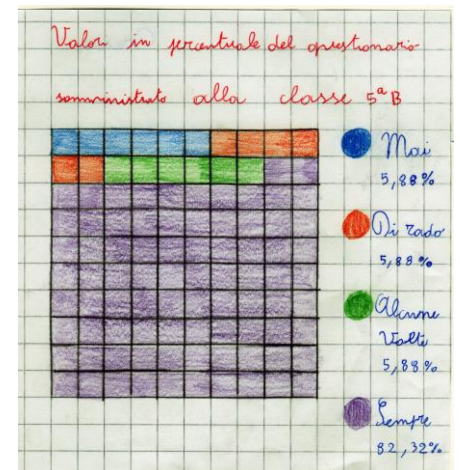 Valori in percentuale del questionario
somministrato alla classe 5ª B
Mai
5,88%
Di rado
5,88%
Alcune
Volte
5,88%
Sempre
82,32%